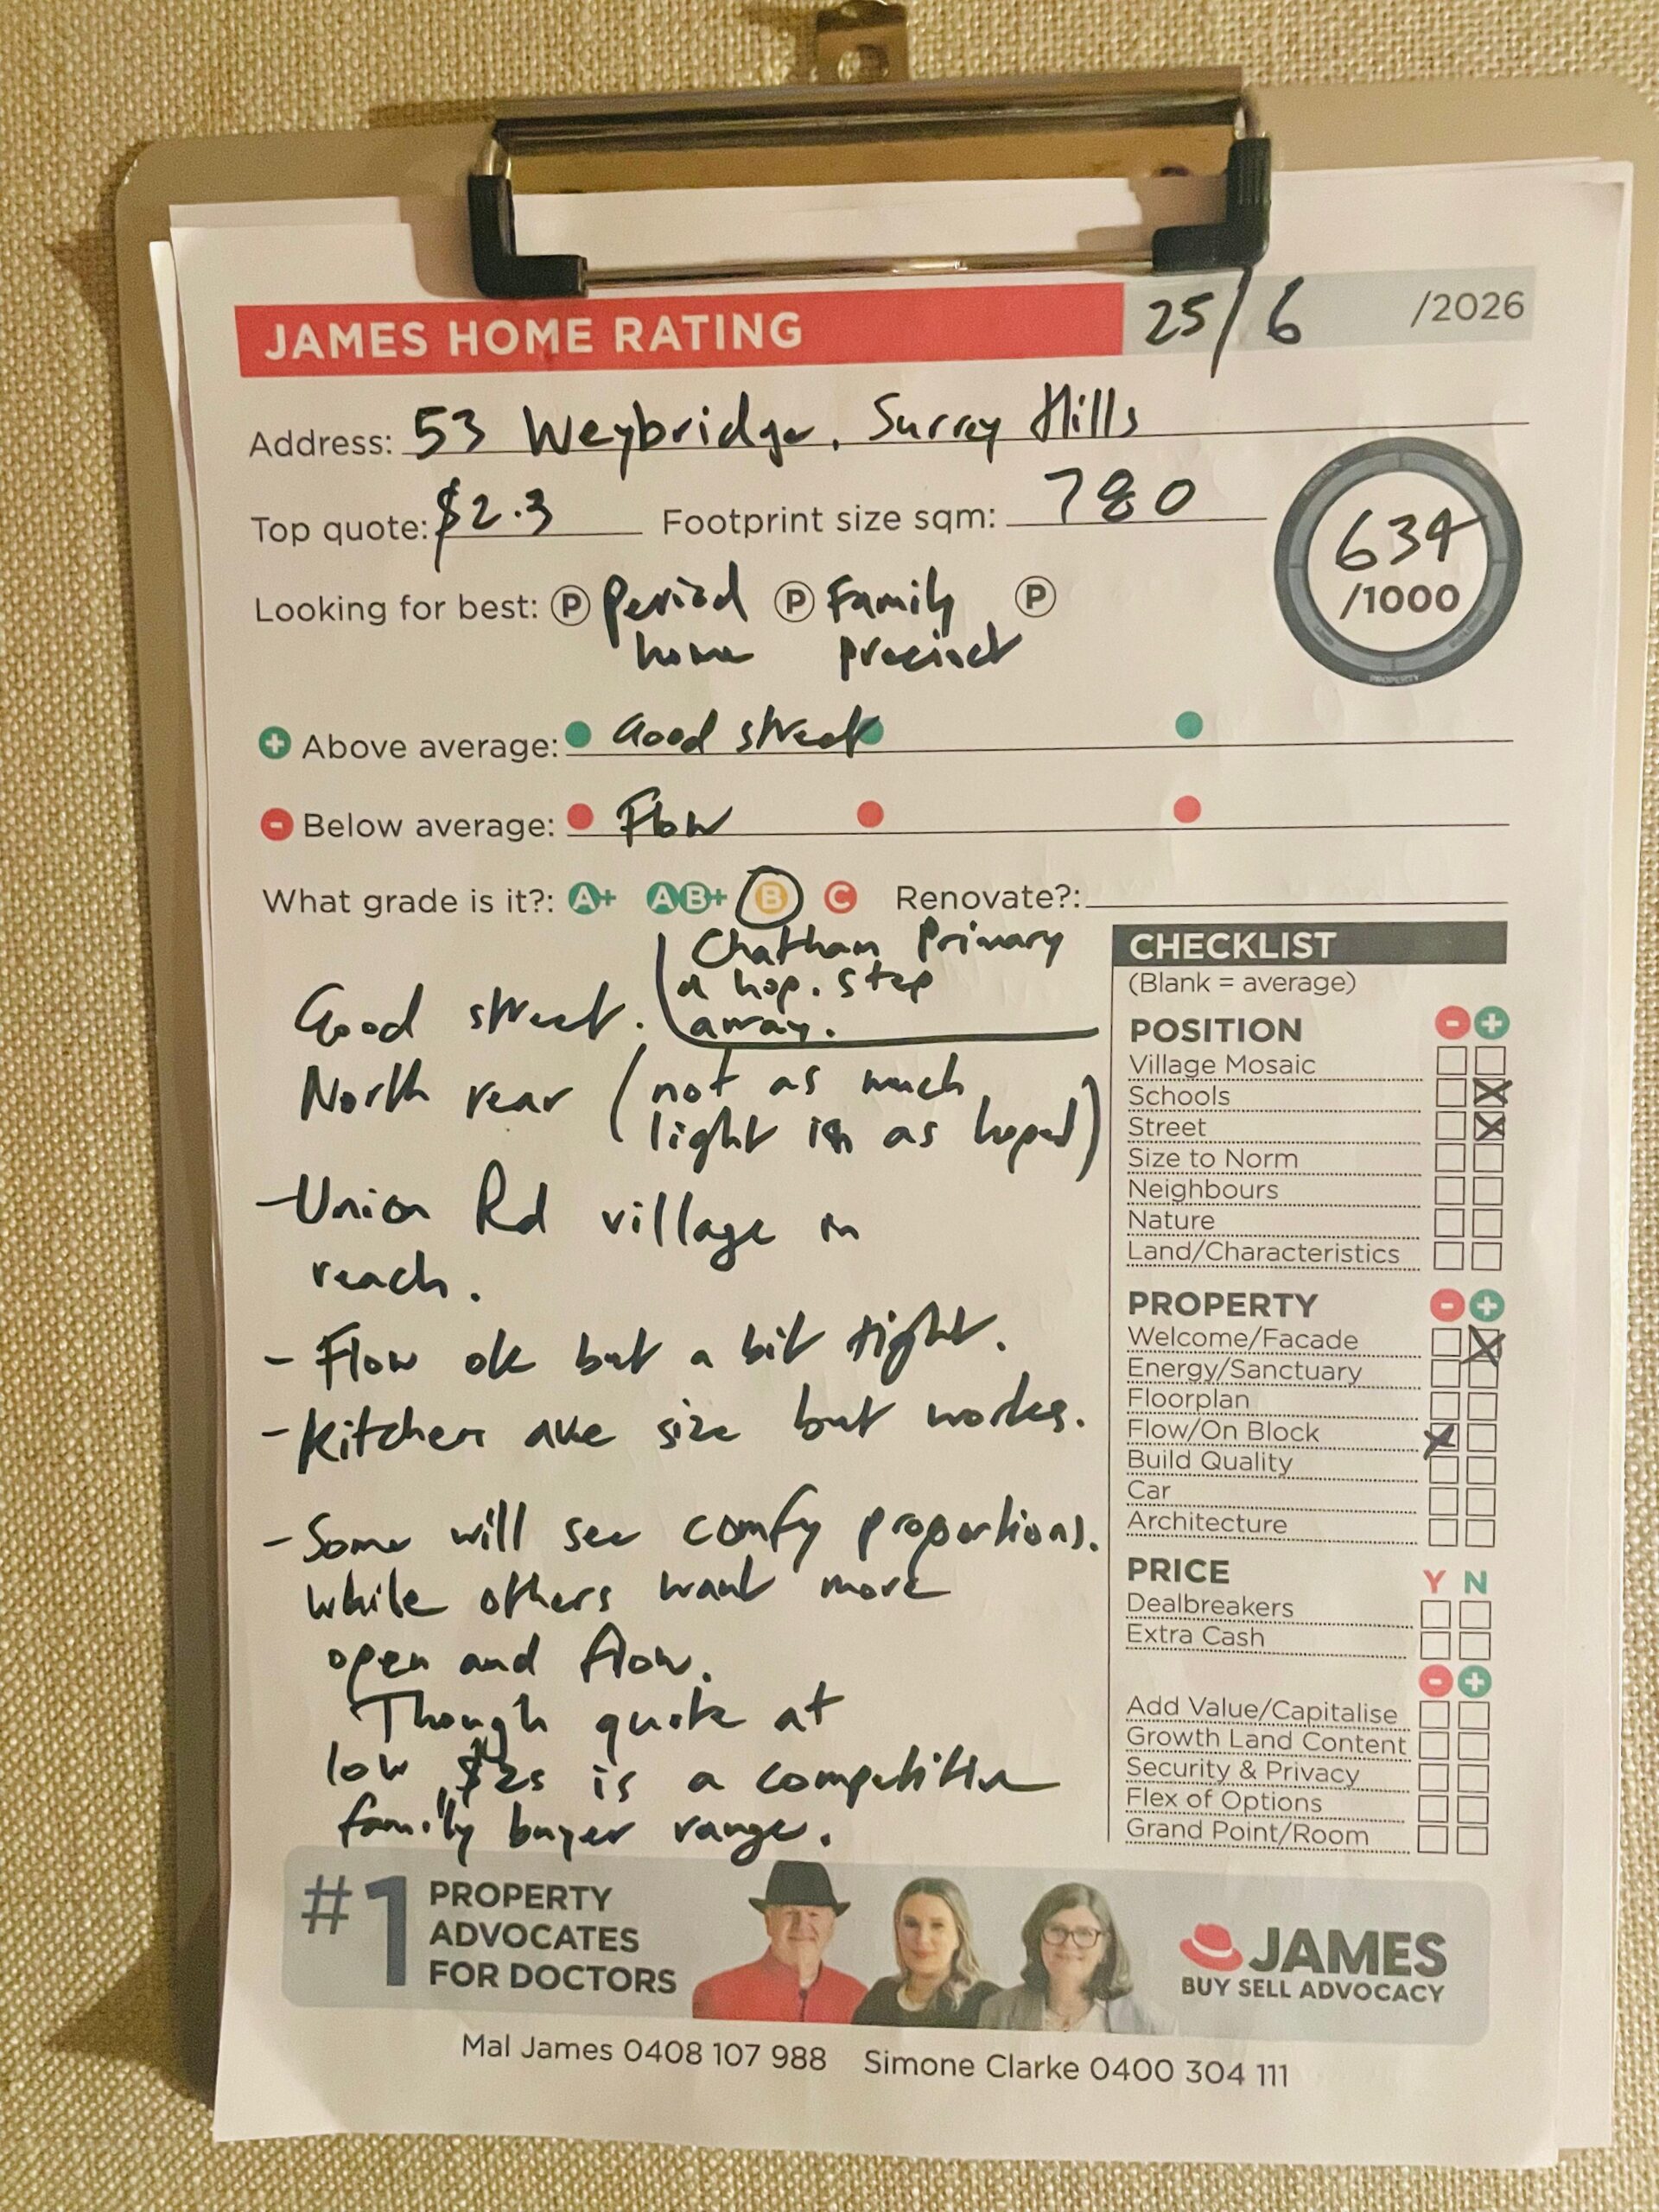 JAMES HOME RATING 25/6 /2026
Address: 53 Weybridge, Surrey Hills
Top quote: $2.3 Footprint size sqm: 780
634
/1000
PROPERTY
Looking for best: P Period P Family P
home precinct
+ Above average: Good street
- Below average: Flow
What grade is it?: A+ AB+ B C Renovate?:
Chatham Primary
a hop. step
away.
Good street.
North rear (not as much
light in as hoped)
- Union Rd village in
reach.
- Flow ok but a bit tight.
- Kitchen ave size but works.
- Some will see comfy proportions.
while others want more
open and flow.
Though quote at
low $2s is a competitive
family buyer range.
CHECKLIST
(Blank = average)
POSITION - +
Village Mosaic
Schools X
Street X
Size to Norm
Neighbours
Nature
Land/Characteristics
PROPERTY - +
Welcome/Facade X
Energy/Sanctuary
Floorplan
Flow/On Block X
Build Quality
Car
Architecture
PRICE Y N
Dealbreakers
Extra Cash
- +
Add Value/Capitalise
Growth Land Content
Security & Privacy
Flex of Options
Grand Point/Room
#1 PROPERTY
ADVOCATES
FOR DOCTORS
JAMES
BUY SELL ADVOCACY
Mal James 0408 107 988 Simone Clarke 0400 304 111